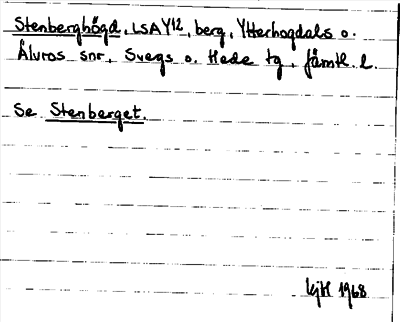 Stenberghögd, LSA Y12, berg, Ytterhogdals o.
Älvros snr, Svegs o. Hede tg, Jämtl. l.
Se Stenberget.
KJH 1968